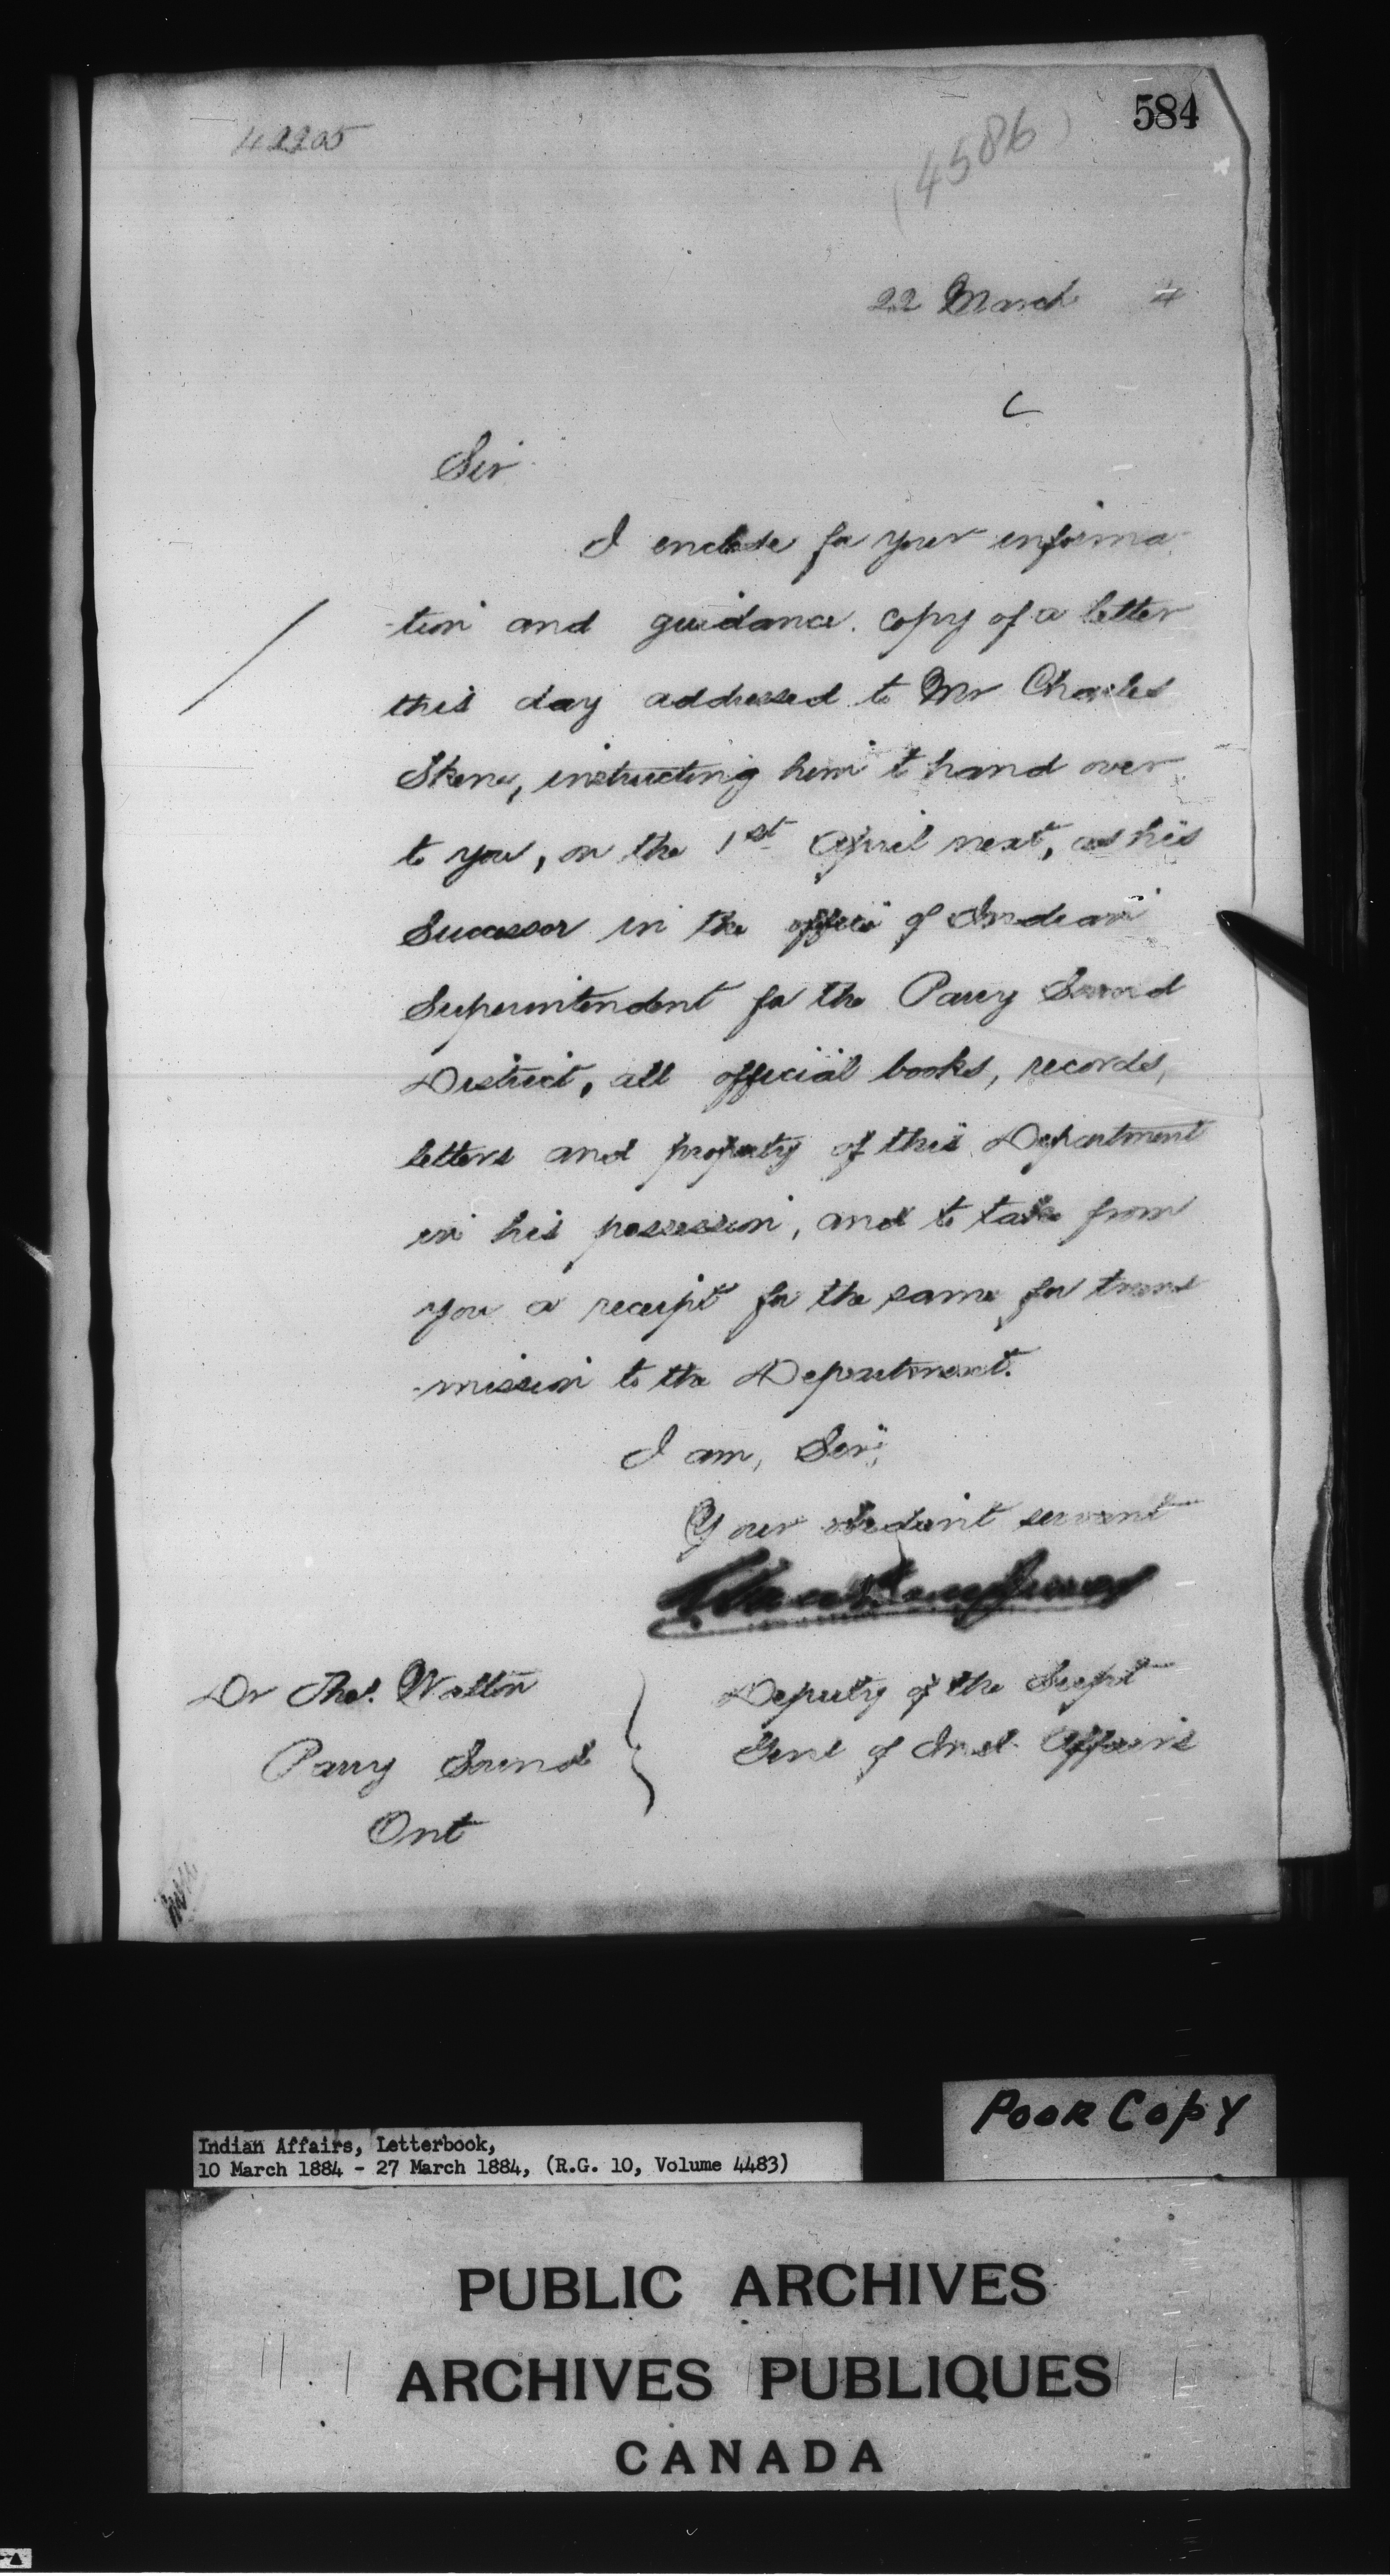 584
42205
(4586)
22 March 4
C
Sir
I enclose for your informa-
-tion and guidance, copy of a letter
this day addressed to Mr Charles
Skene, instructing him to hand over
to you, on the 1st April next, as his
Successor in the office of Indian
Superintendent for the Parry Sound
District, all official books, records,
letters and property of this Department
in his possession, and to take from
you a receipt for the same for trans
-mission to the Department.
I am, Sir,
Your obedient servant
Dr Thos. Walton
Parry Sound
Ont
Deputy of the Supt
Genl of Ind. Affairs
Poor Copy
Indian Affairs, Letterbook,
10 March 1884 - 27 March 1884, (R.G. 10, Volume 4483)
PUBLIC ARCHIVES
ARCHIVES PUBLIQUES
CANADA